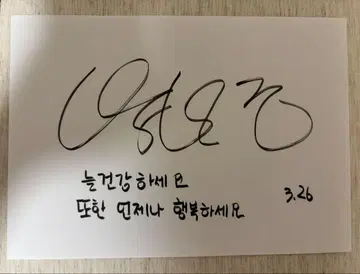 늘건강하세요
또한 언제나 행복하세요
3.26